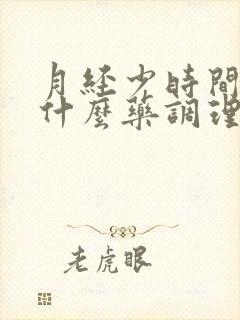 月经少时間
什麼藥調理
老虎眼